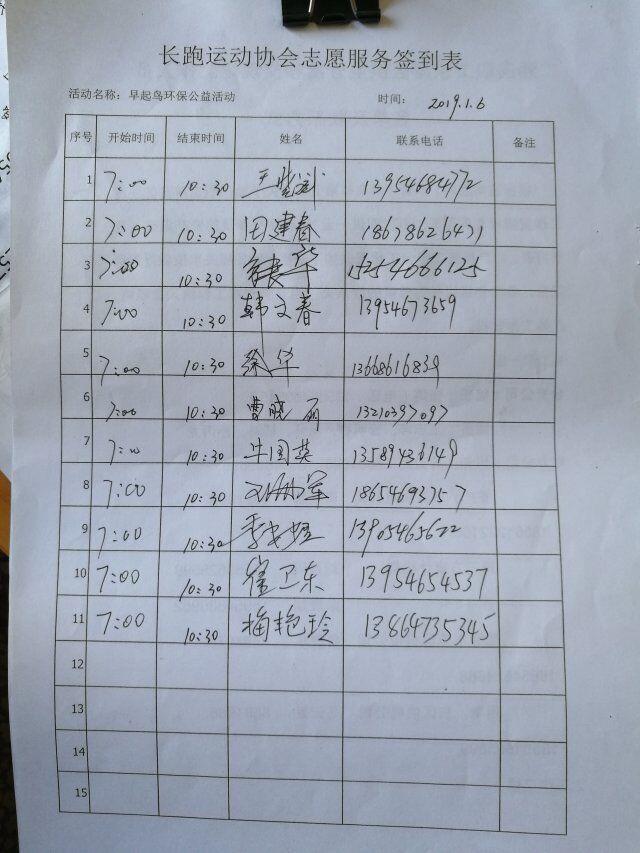 长跑运动协会志愿服务签到表
活动名称：早起鸟环保公益活动 时间： 2019.1.6
序号 开始时间 结束时间 姓名 联系电话 备注
1 7:00 10:30 13954684772
2 7:00 10:30 田建春 18678626471
3 7:00 10:30 15254666125
4 7:00 10:30 韩文春 13954673659
5 7:00 10:30 徐华 13668616839
6 7:00 10:30 曹晓丽 13210397097
7 7:00 10:30 牛国英 13589436149
8 7:00 10:30 18654693757
9 7:00 10:30 13905465622
10 7:00 10:30 崔卫东 13954654537
11 7:00 10:30 梅艳玲 13864735345
12
13
14
15